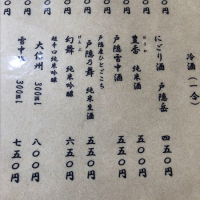 冷酒（一合）
にごり酒 戸隠岳 四五〇円
戸隠雪中酒 五〇〇円
豊香 純米酒 五〇〇円
戸隠産ひとごこち
戸隠乃舞 純米生酒 五五〇円
幻舞 純米吟醸 六五〇円
超辛口純米吟醸
大信州 300ml 八〇〇円
雪中 300ml 七五〇円
〇〇円